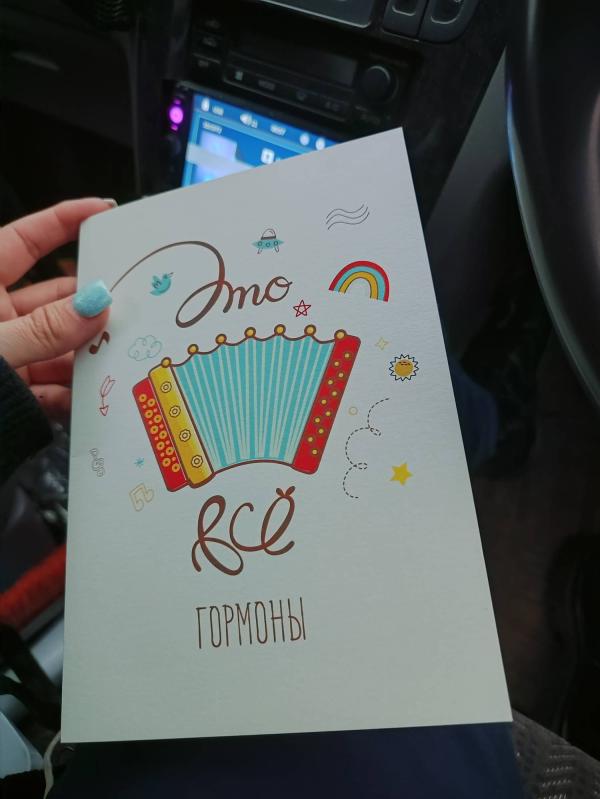 Это
всё
ГОРМОНЫ